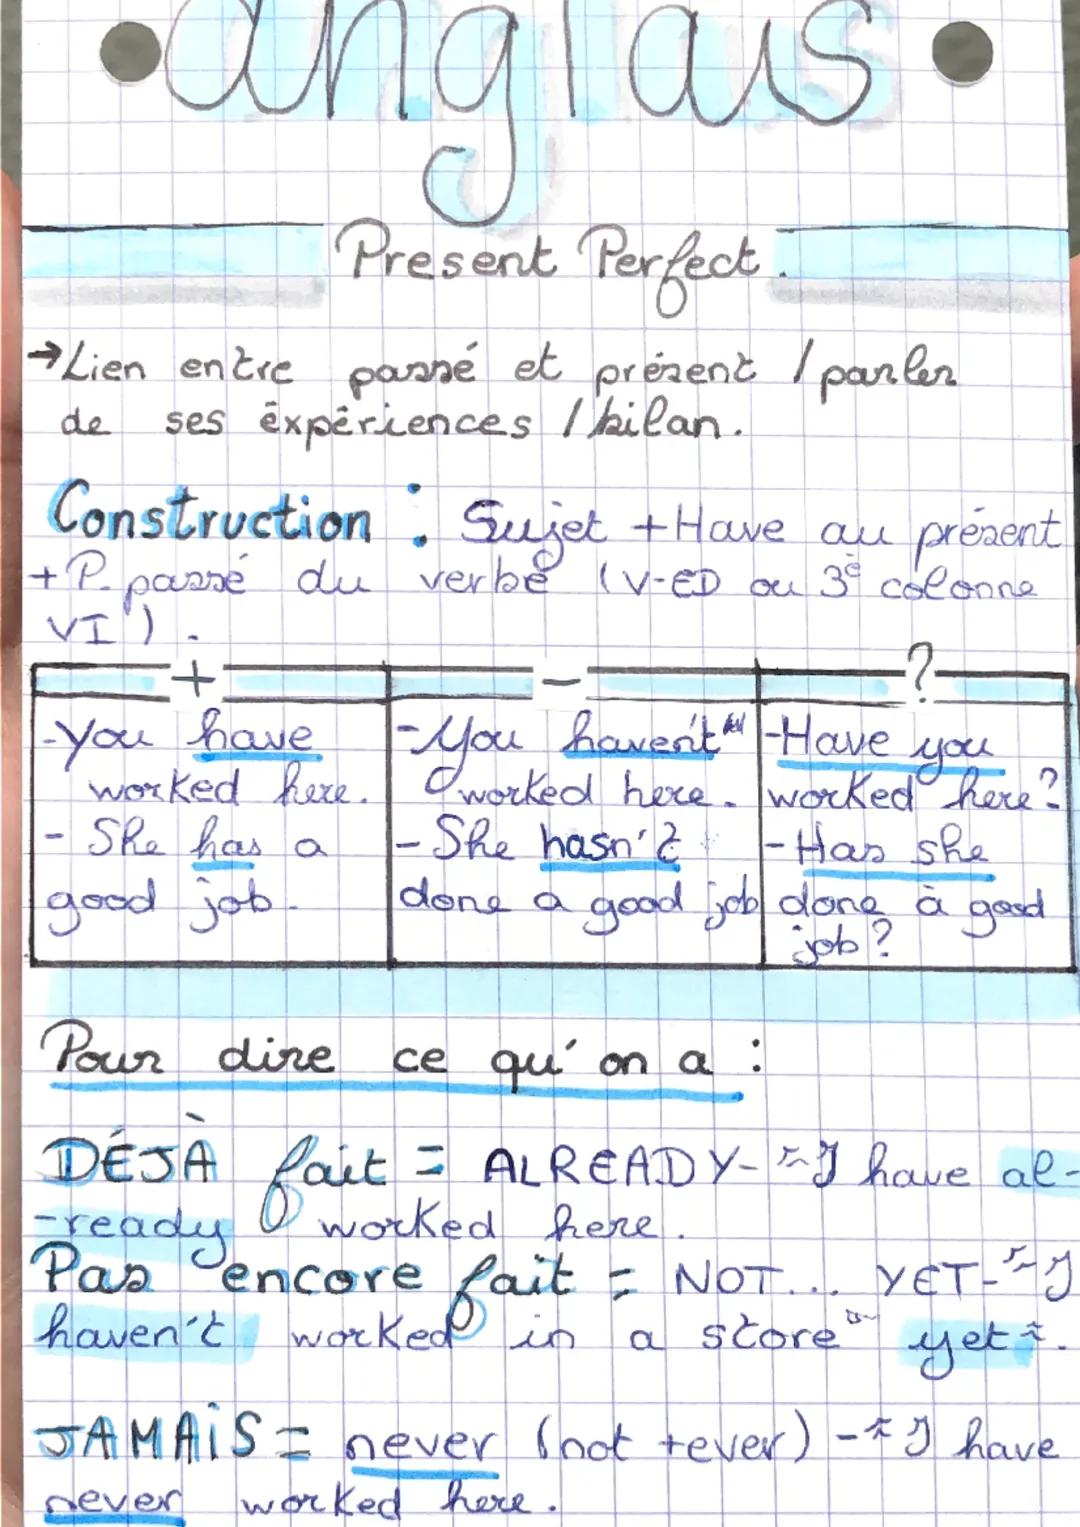 anglais
Present Perfect.
→Lien entre passé et présent / parler
de ses expériences / bilan.
Construction : Sujet + Have au présent
+ P. passé du verbe (V-ED ou 3e colonne
VI).
+
-You have
worked here.
- She has a
good job.
—
-You haven't
worked here.
- She hasn't
done a good job
?
-Have you
worked here?
-Has she
done a good
job?
Pour dire ce qu'on a :
DÉJÀ fait = ALREADY- "I have al-
-ready worked here.
Pas encore fait = NOT... YET- "I
haven't worked in a store yet".
JAMAIS = never (not +ever) - "I have
never worked here.